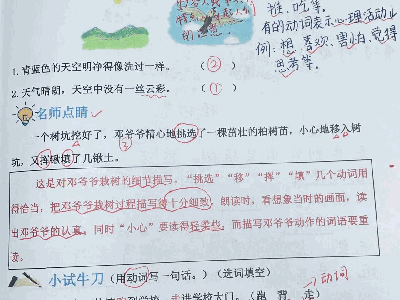 推、吃等。
有的动词表示心理活动
例：想、喜欢、害怕、觉得
思考等。
1. 青蓝色的天空明净得像洗过一样。 （ ② ）
2. 天气晴朗，天空中没有一丝云彩。 （ ① ）
名师点睛
一个树坑挖好了，邓爷爷精心地挑选了一棵茁壮的柏树苗，小心地移入树
坑，又挥锹填了几锹土。
这是对邓爷爷栽树的细节描写。“挑选”“移”“挥”“填”几个动词用
得恰当，把邓爷爷栽树过程描写得十分细致。朗读时，看想象当时的画面，读
出邓爷爷的认真。同时“小心”要读得轻柔些，而描写邓爷爷动作的词语要重
读。
小试牛刀（用动词写一句话。）（选词填空）
动词
学校，走进学校大门。（跑 背 走）